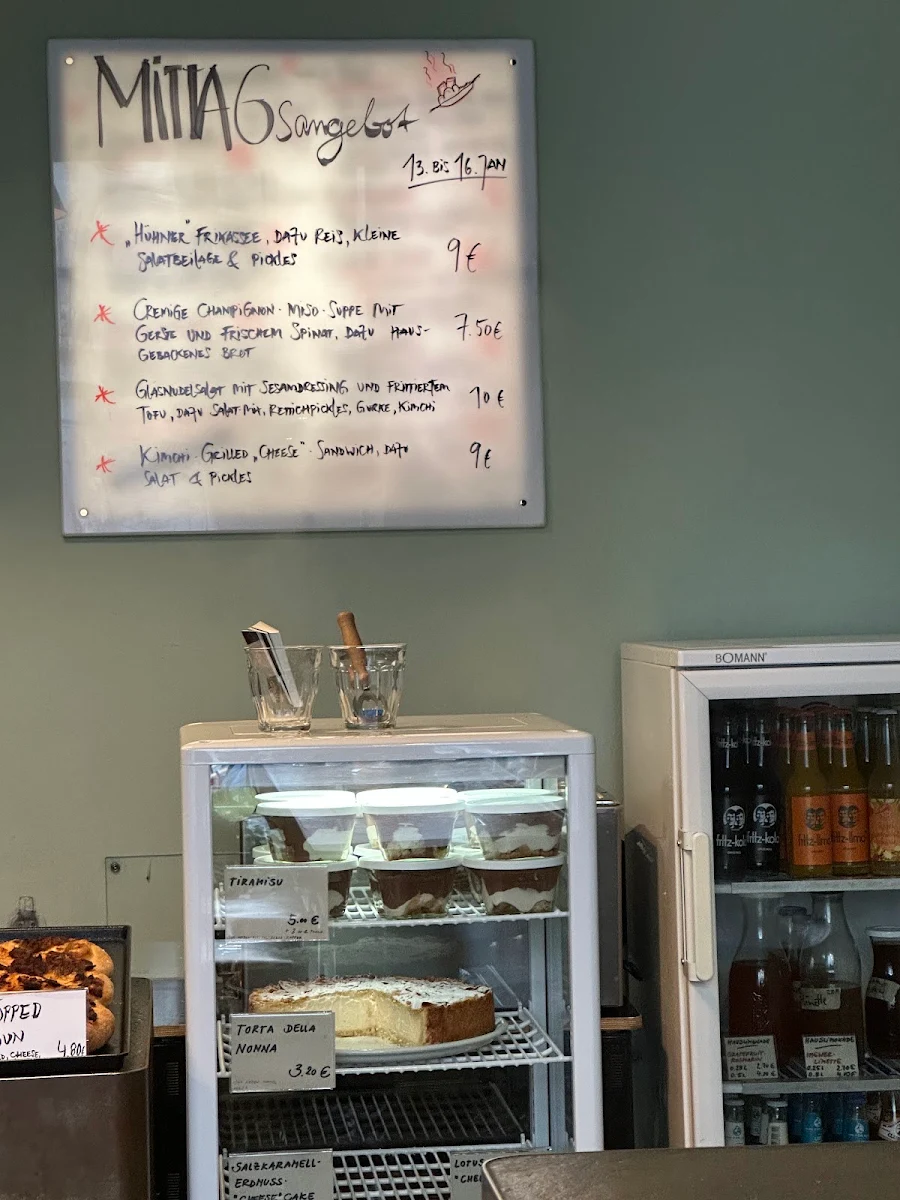 MITTAGsangebot
13. BIS 16. JAN
„HÜHNER" FRIKASSEE, DAZU REIS, KLEINE
SALATBEILAGE & PICKLES
9 €
CREMIGE CHAMPIGNON-MISO-SUPPE MIT
GERSTE UND FRISCHEM SPINAT, DAZU HAUS-
GEBACKENES BROT
7.50€
GLASNUDELSALAT MIT SESAMDRESSING UND FRITTIERTEM
TOFU, DAZU SALAT-MIX, RETTICHPICKLES, GURKE, KIMCHI
10 €
KIMCHI-GRILLED „CHEESE"-SANDWICH, DAZU
SALAT & PICKLES
9€
BOMANN
fritz-kola
fritz-kola
fritz-limo
fritz-limo
TIRAMISU
5.00 €
TORTA DELLA
NONNA
3.20 €
SALZKARAMELL-
ERDNUSS-
"CHEESE"CAKE
LOTUS
OPPED
UN
CHEESE,
4.80€
HAUSLIMONADE
GRAPEFRUIT
ROSMARIN
HAUSLIMONADE
INGWER-
LIMETTE